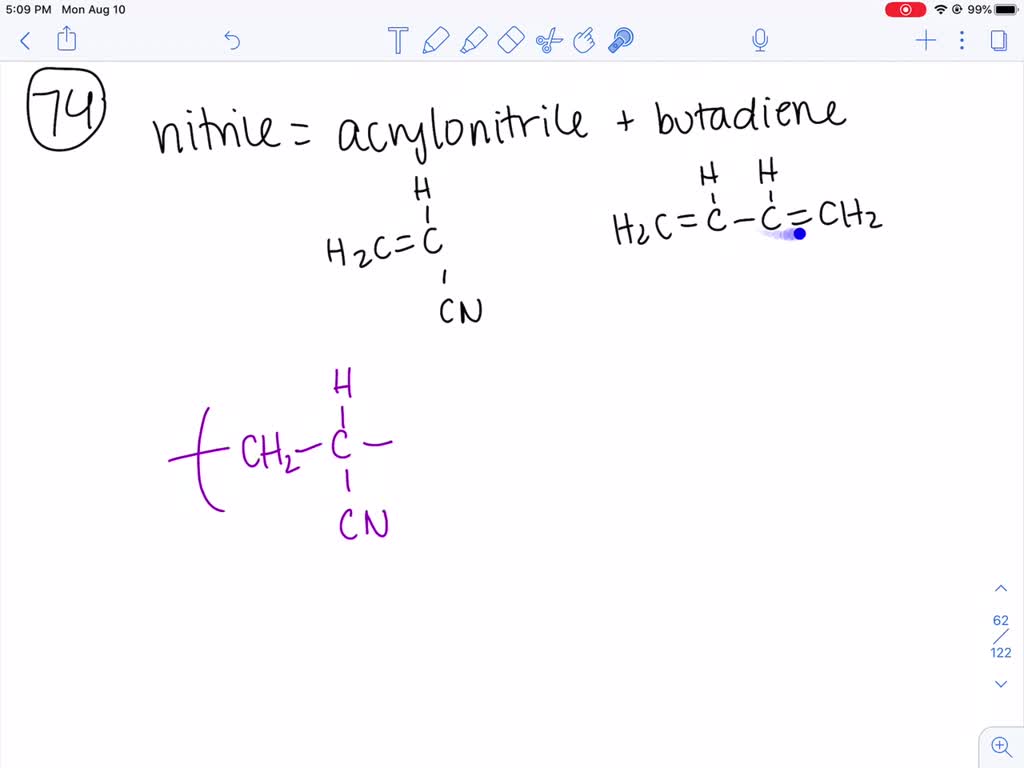 5:09 PM Mon Aug 10 99%
T
74 nitrile = acrylonitrile + butadiene
H H H
H2C=C H2C=C-C=CH2
CN
H
CH2-C-
CN
62
122